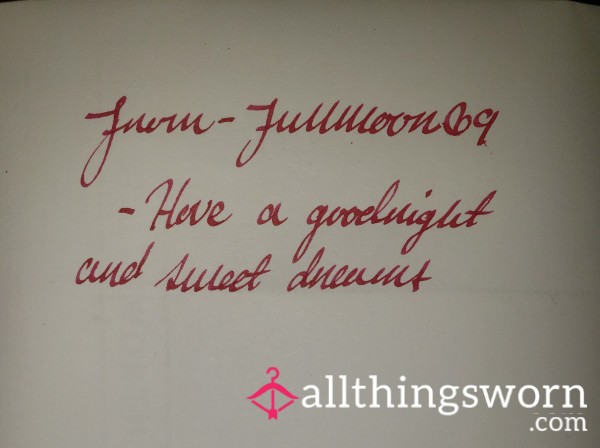 From - FullMoon69
- Have a goodnight
and sweet dreams
allthingsworn
.com